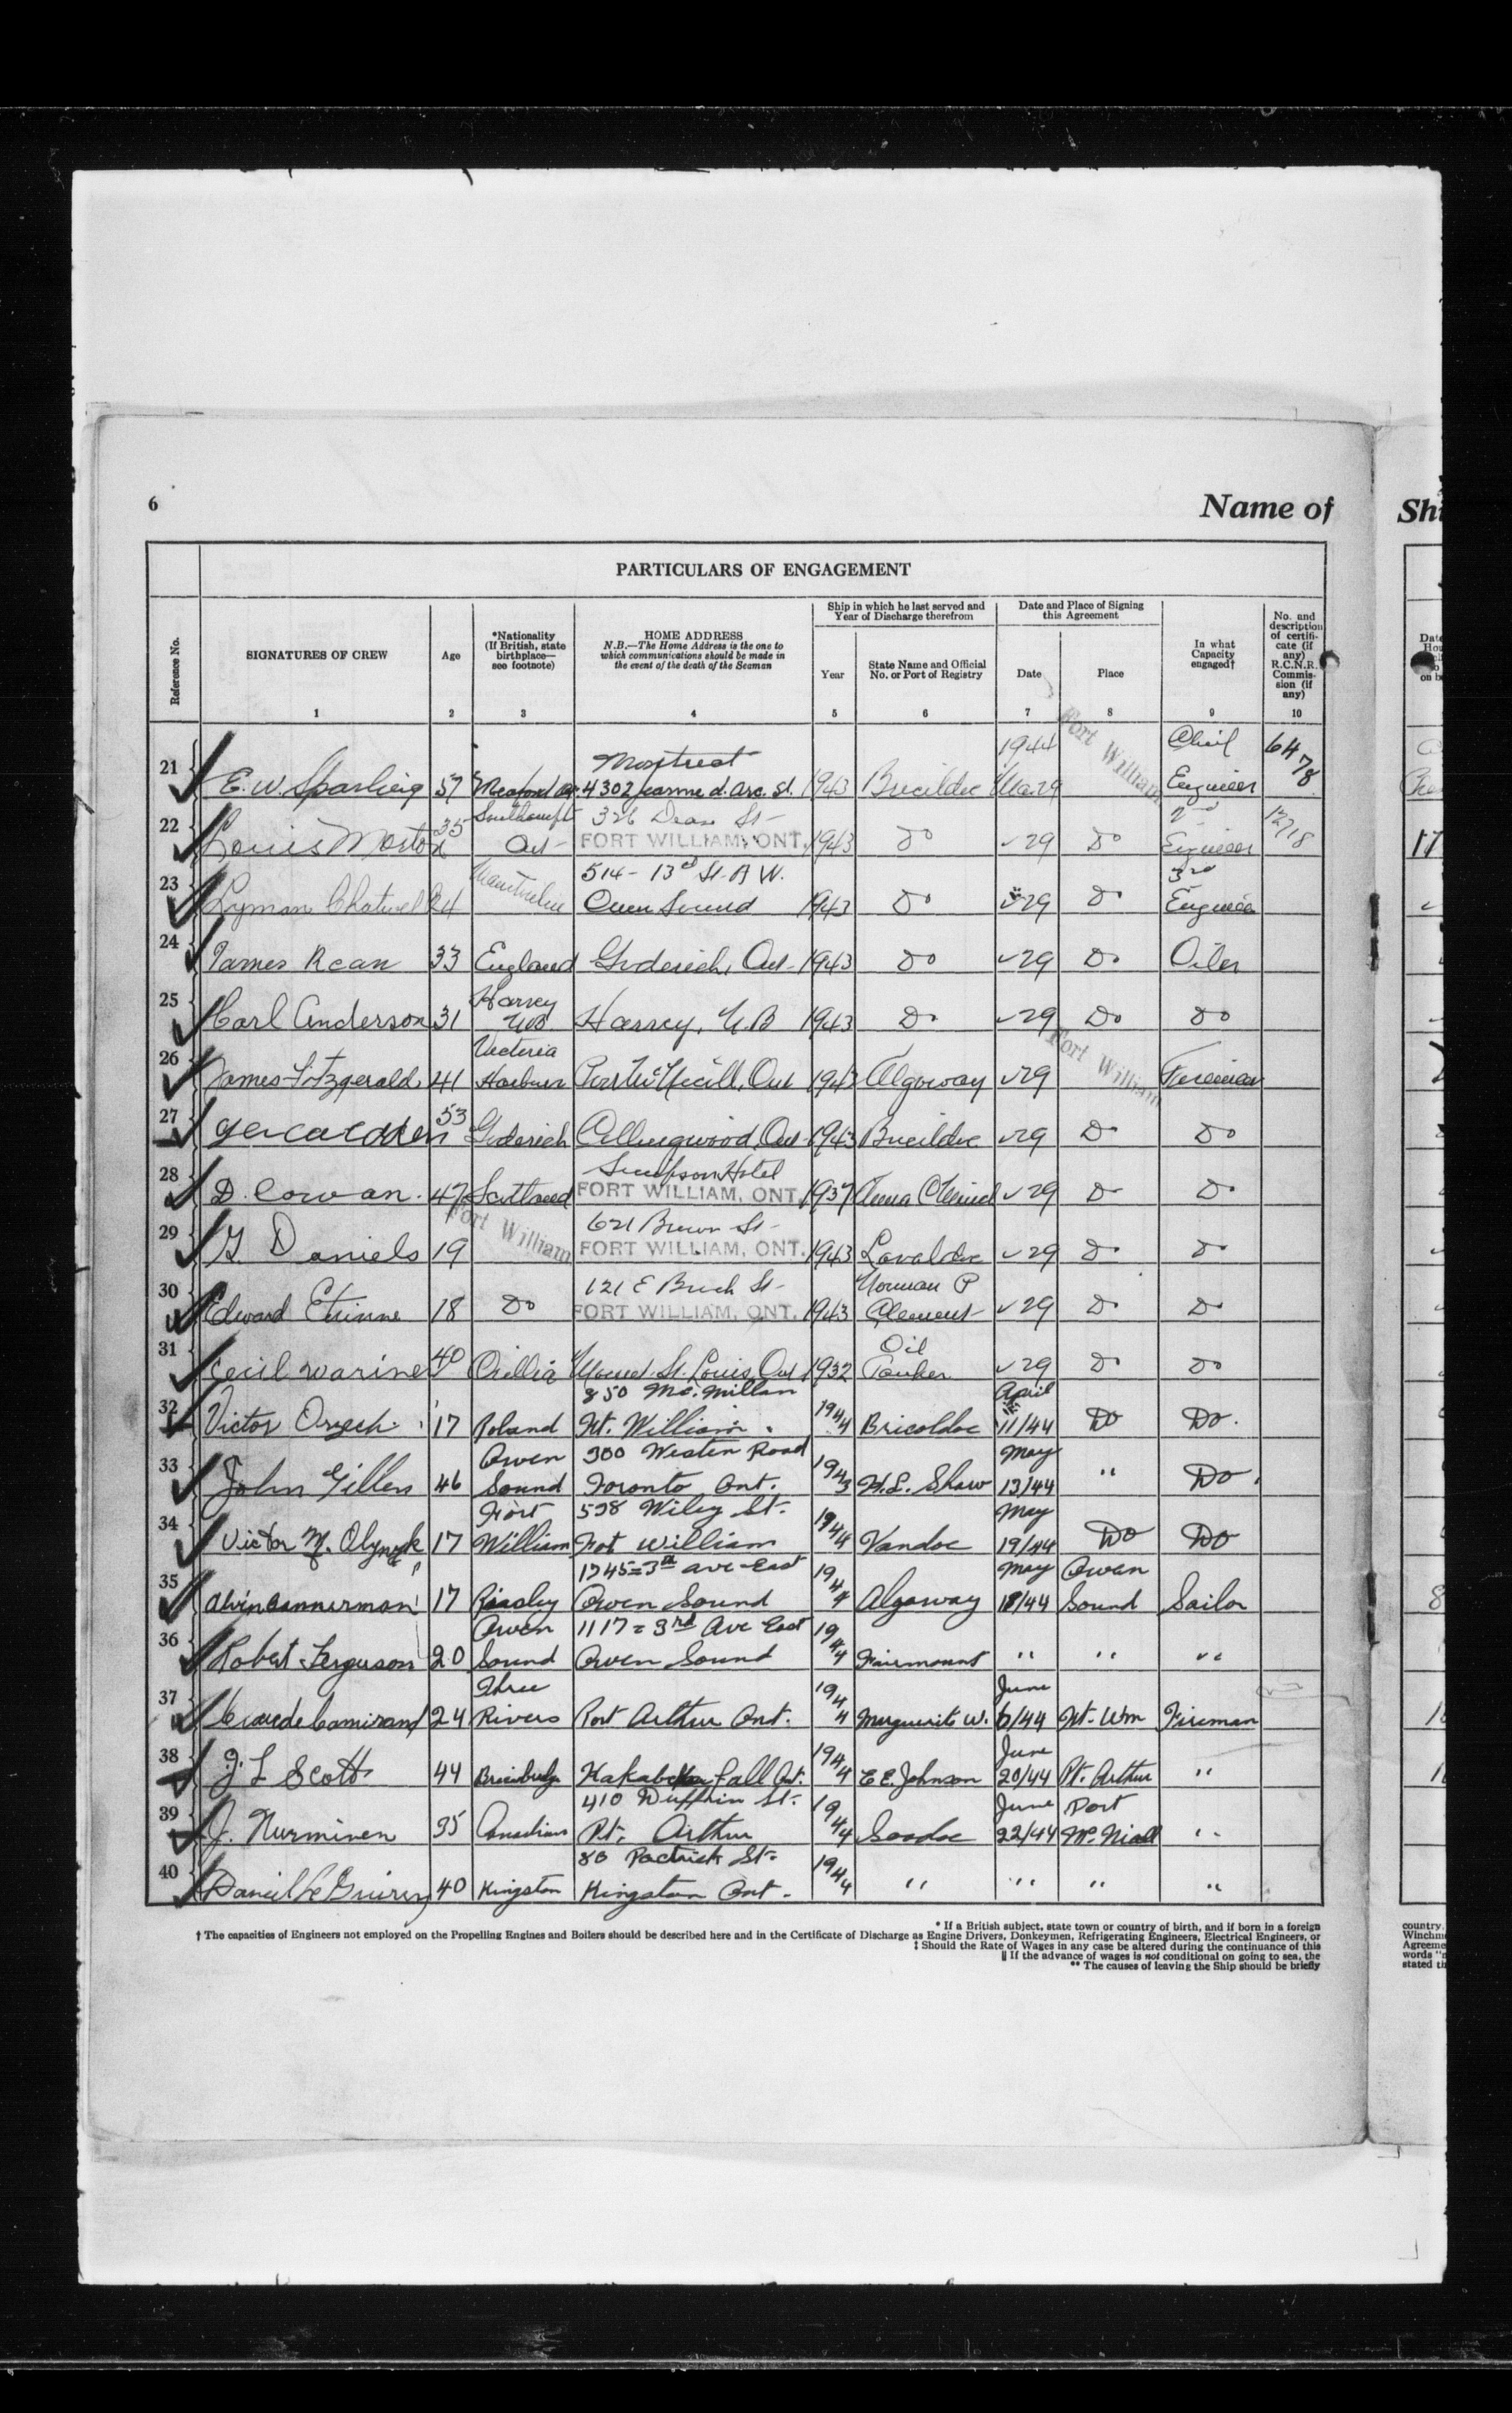 6
Name of
Shi
PARTICULARS OF ENGAGEMENT
Reference No.
SIGNATURES OF CREW
Age
*Nationality (If British, state birthplace—see footnote)
HOME ADDRESS
N.B.—The Home Address is the one to which communications should be made in the event of the death of the Seaman
Ship in which he last served and Year of Discharge therefrom
Year
State Name and Official No. or Port of Registry
Date and Place of Signing this Agreement
Date
Place
In what Capacity engaged†
No. and description of certificate (if any) R.C.N.R. Commission (if any)
1 2 3 4 5 6 7 8 9 10
Montreal 1944 Fort William Chief 6478
21 E. W. Sparling 57 4302 Jeanne d. Arc. St. 1943 Mar 29 Engineer
35 326 Dean St- 2nd 12718
22 Louis Ont- FORT WILLIAM, ONT. 1943 Do 29 Do Engineer
514 - 13th St. A W. 3rd
23 Lyman Chatwell 24 Owen Sound 1943 Do 29 Do Engineer
24 James Kean 33 England Goderich, Ont- 1943 Do 29 Do Oiler
Harvey
25 Carl Anderson 31 N.B Harvey, N.B 1943 Do 29 Do Do
Victoria Fort William
26 James Fitzgerald 41 Harbour Port McNicoll, Ont 1943 Algoway 29 Fireman
53
27 Goderich Collingwood, Ont- 1943 29 Do Do
Simpson Hotel
28 D. Cowan. 47 Scotland FORT WILLIAM, ONT. 1937 29 Do Do
Fort William 621 Brown St-
29 G. Daniels 19 FORT WILLIAM, ONT. 1943 Lavaldoc 29 Do Do
121 E Brock St- Norman P
30 Edward Etienne 18 Do FORT WILLIAM, ONT. 1943 Clement 29 Do Do
40 Oil
31 Cecil Warine Orillia Mount St. Louis, Ont 1932 Tanker 29 Do Do
850 Mc. Millan April
32 Victor 17 Poland Ft. William. 1944 Bricoldoc 11/44 Do Do.
Owen 300 Westen Road May
33 John Gillen 46 Sound Toronto Ont. 1943 H.L. Shaw 13/44 " Do.
Fort 538 Wiley St. May
34 Victor M. Olynyk 17 William Fot William 1944 Vandoc 19/44 Do Do
1745=3rd ave-East May Owen
35 Alvin Cannerman 17 Owen Sound 1944 Algoway 18/44 Sound Sailor
Owen 1117 = 3rd Ave East
36 Robert Ferguson 20 Sound Owen Sound 1944 Fairmount " " "
Three June
37 Claude Camirand 24 Rivers Port Arthur Ont. 1944 Marguerite W. 6/44 Ft. Wm Fireman
June
38 J. L Scott 44 Kakabeka Fall Ont. 1944 E E. Johnson 20/44 Pt. Arthur "
410 Dufferin St. June Port
39 J. Nurminen 35 Canadian Pt. Arthur 1944 Soodoc 22/44 Mc. Niall "
80 Patrick St.
40 40 Kingston Kingston Ont- 1944 " " " "
* If a British subject, state town or country of birth, and if born in a foreign
† The capacities of Engineers not employed on the Propelling Engines and Boilers should be described here and in the Certificate of Discharge as Engine Drivers, Donkeymen, Refrigerating Engineers, Electrical Engineers, or
‡ Should the Rate of Wages in any case be altered during the continuance of this
‖ If the advance of wages is not conditional on going to sea, the
** The causes of leaving the Ship should be briefly
country.
Winchm
Agreeme
words "
stated th